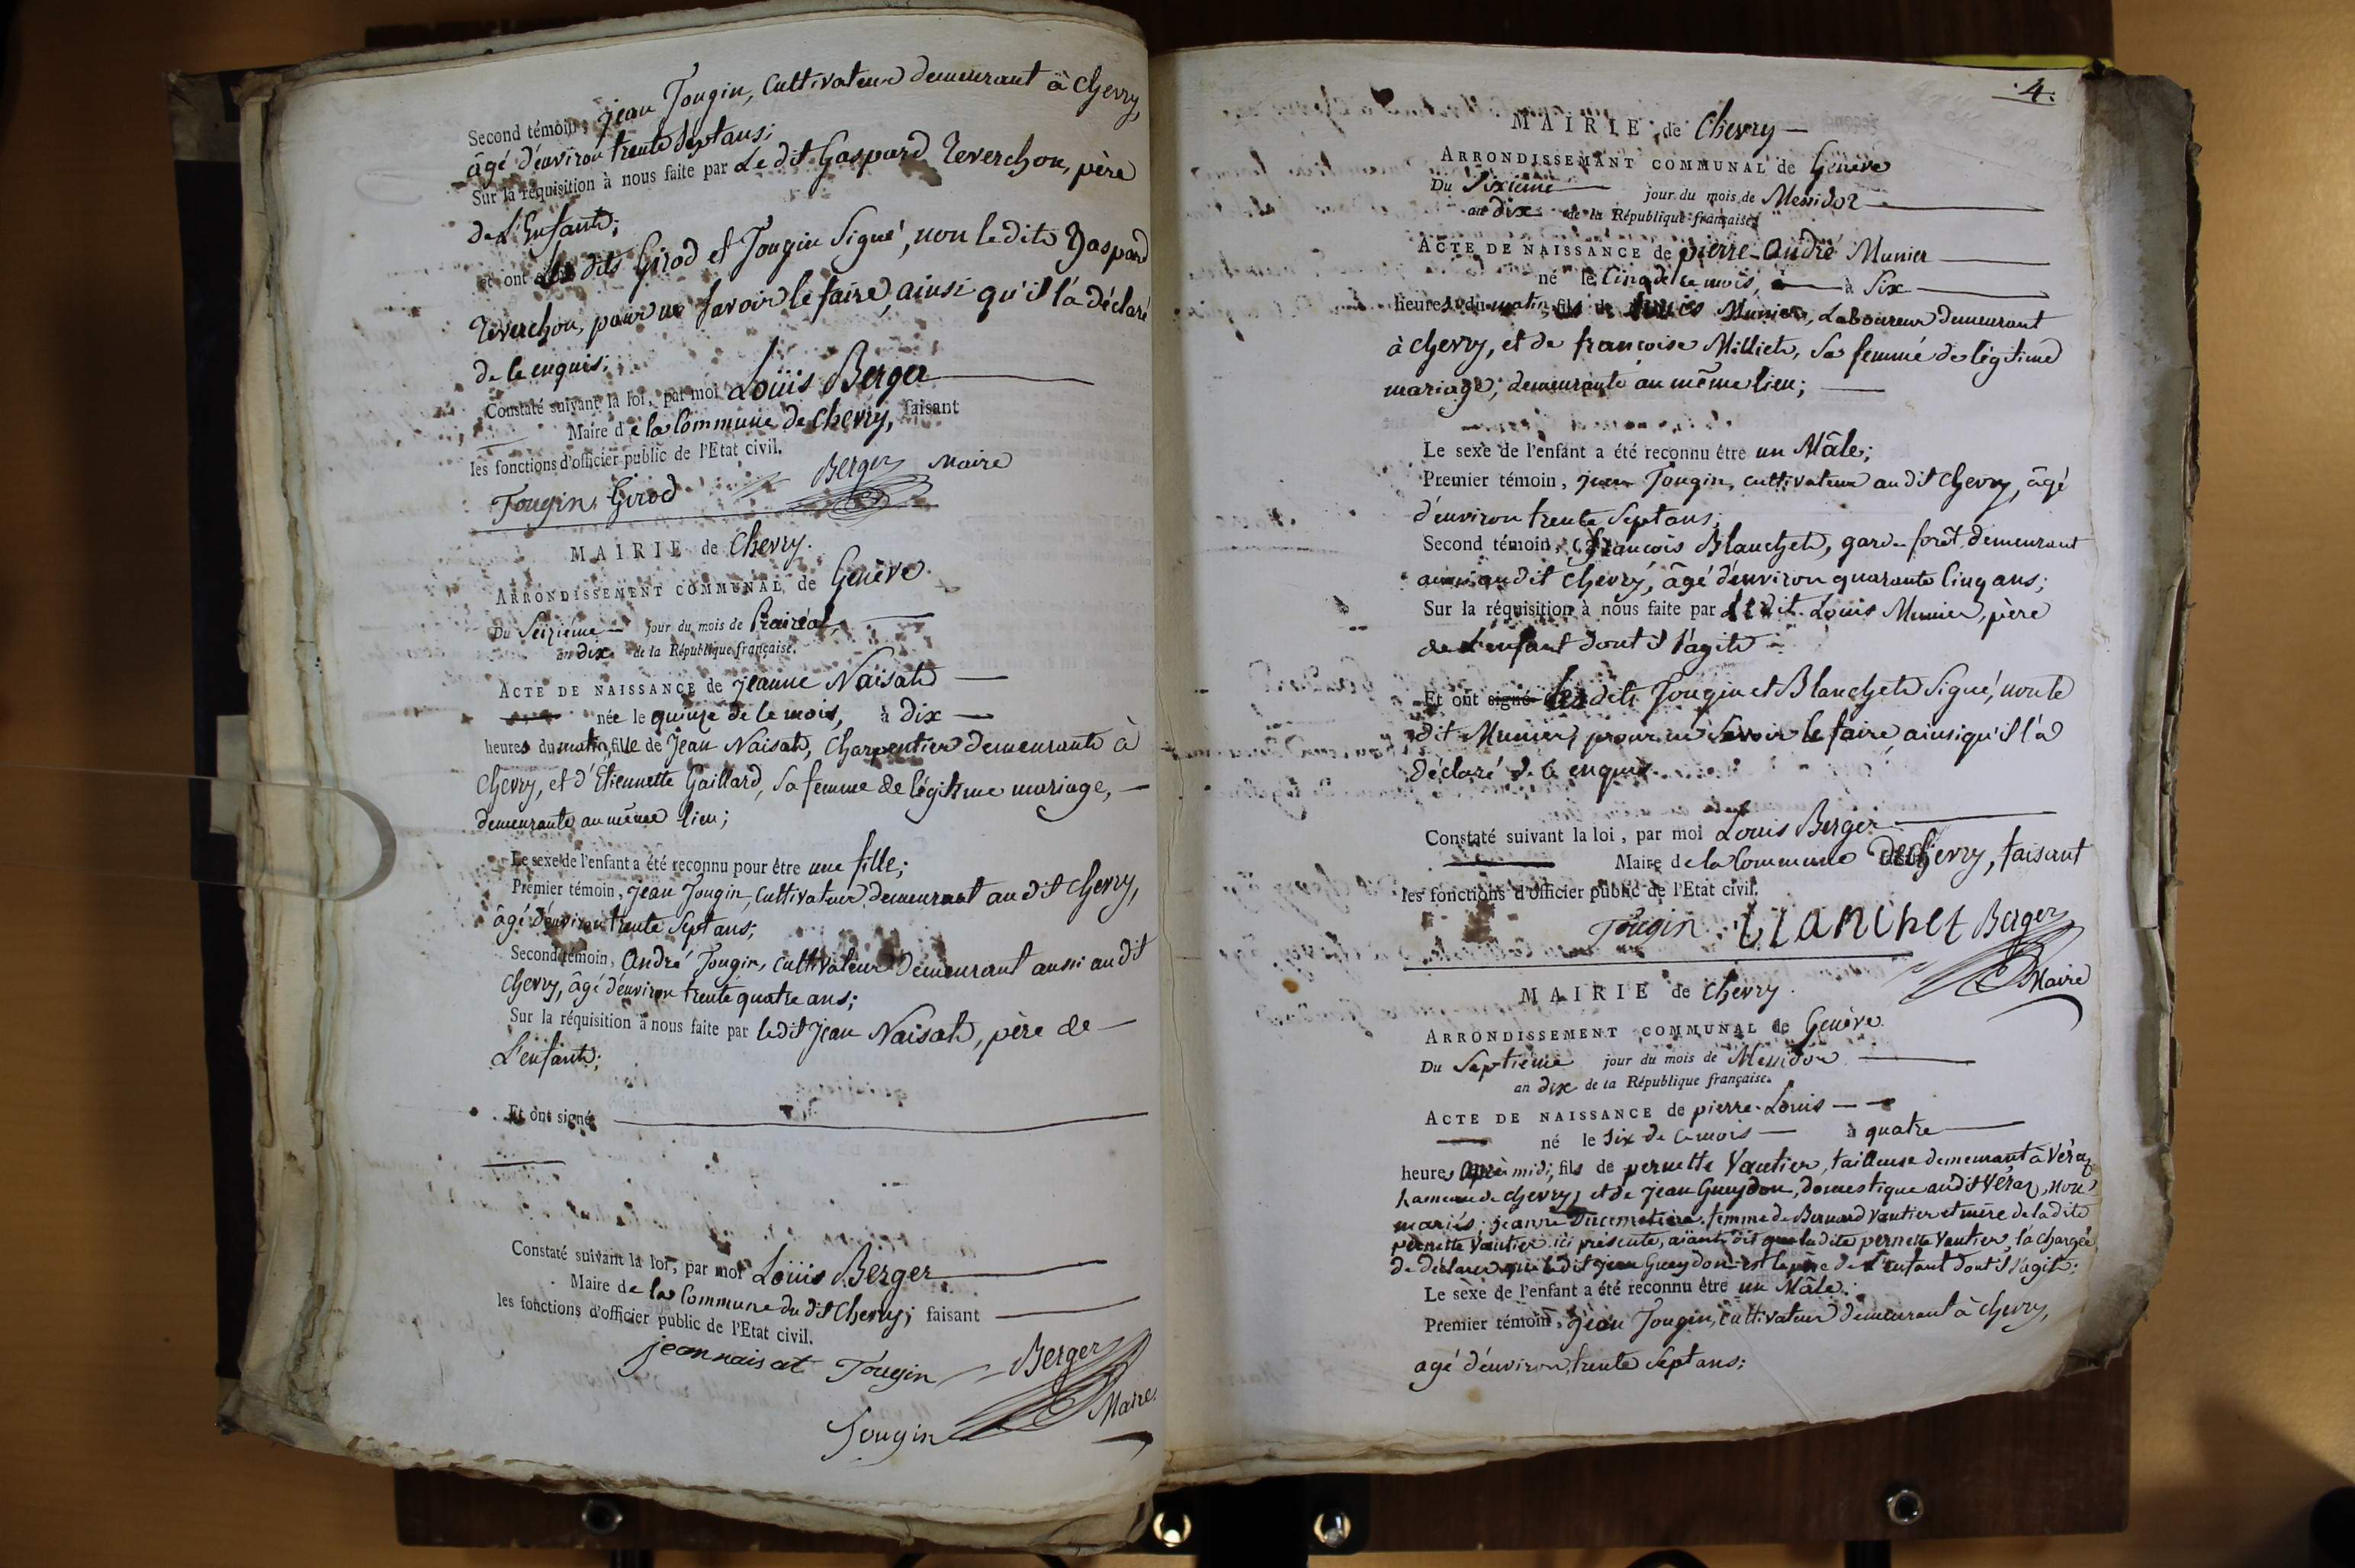 Second témoin, jean Tougin, Cultivateur demeurant à Chevry,
âgé d'environ trente Sept ans;
Sur la réquisition à nous faite par Le dit Gaspard Reverchon, père
de L'Enfant;
et ont les dits Girod et Tougin Signé, non le dit Gaspard
Reverchon, pour ne savoir le faire, ainsi qu'il l'a déclaré
de le enquis;
Constaté suivant la loi, par moi Louis Berger
Maire de la Commune de Chevry, faisant
les fonctions d'officier public de l'Etat civil.
Berger Maire
Tougin Girod
MAIRIE de Chevry.
ARRONDISSEMENT COMMUNAL de Genève
Du Seizième jour du mois de Prairéal
an dix de la République française.
ACTE DE NAISSANCE de jeanne Naisat
née le quinze de le mois, à dix
heures du matin, fille de Jean Naisat, Charpentier demeurant à
Chevry, et d'Etiennette Gaillard, Sa femme de légitime mariage,
demeurante au même lieu;
Le sexe de l'enfant a été reconnu pour être une fille;
Premier témoin, jean Tougin, Cultivateur demeurant au dit Chevry,
âgé d'environ trente Sept ans;
Second témoin, André Tougin, Cultivateur demeurant aussi au dit
Chevry, âgé d'environ trente quatre ans;
Sur la réquisition à nous faite par le dit Jean Naisat, père de
L'enfant;
Et ont signé
Constaté suivant la loi, par moi Louis Berger
Maire de la Commune du dit Chevry; faisant
les fonctions d'officier public de l'Etat civil.
jean naisat Tougin Berger
Maire
Tougin
4.
MAIRIE de Chevry
ARRONDISSEMANT COMMUNAL de Genève
Du Sixième jour du mois de Messidor
an dix de la République française
ACTE DE NAISSANCE de pierre-André Munier
né le Cinq de le mois, à Six
heures du matin, fils de Louis Munier, Laboureur demeurant
à Chevry, et de françoise Milliet, Sa femme de légitime
mariage, demeurante au même lieu;
Le sexe de l'enfant a été reconnu être un Mâle;
Premier témoin, jean Tougin, cultivateur au dit Chevry, âgé
d'environ trente Sept ans;
Second témoin, françois Blanchet, garde forêt demeurant
aussi au dit Chevry, âgé d'environ quarante Cinq ans;
Sur la réquisition à nous faite par Le dit Louis Munier, père
de L'enfant dont il s'agit
Et ont signé les dits Tougin et Blanchet Signé, non le
dit Munier, pour ne Savoir le faire, ainsi qu'il l'a
déclaré de le enquis.
Constaté suivant la loi, par moi Louis Berger
Maire de la Commune de Chevry, faisant
les fonctions d'officier public de l'Etat civil.
Tougin blanchet Berger
Maire
MAIRIE de Chevry.
ARRONDISSEMENT COMMUNAL de Genève.
Du Septième jour du mois de Messidor
an dix de la République française.
ACTE DE NAISSANCE de pierre-Louis
né le Six de le mois à quatre
heures après midi, fils de pernette Vautier, tailleuse demeurant à Véraz
hameau de Chevry, et de jean Gueydon, domestique au dit Véraz, non
mariés; jeanne Ducimetière femme de Bernard Vautier et mère de la dite
pernette Vautier ici présente, aïant dit que la dite pernette Vautier, l'a chargée
de déclarer que le dit jean Gueydon est le père de L'enfant dont il s'agit;
Le sexe de l'enfant a été reconnu être un Mâle;
Premier témoin, jean Tougin, cultivateur demeurant à Chevry,
agé d'environ trente Sept ans;